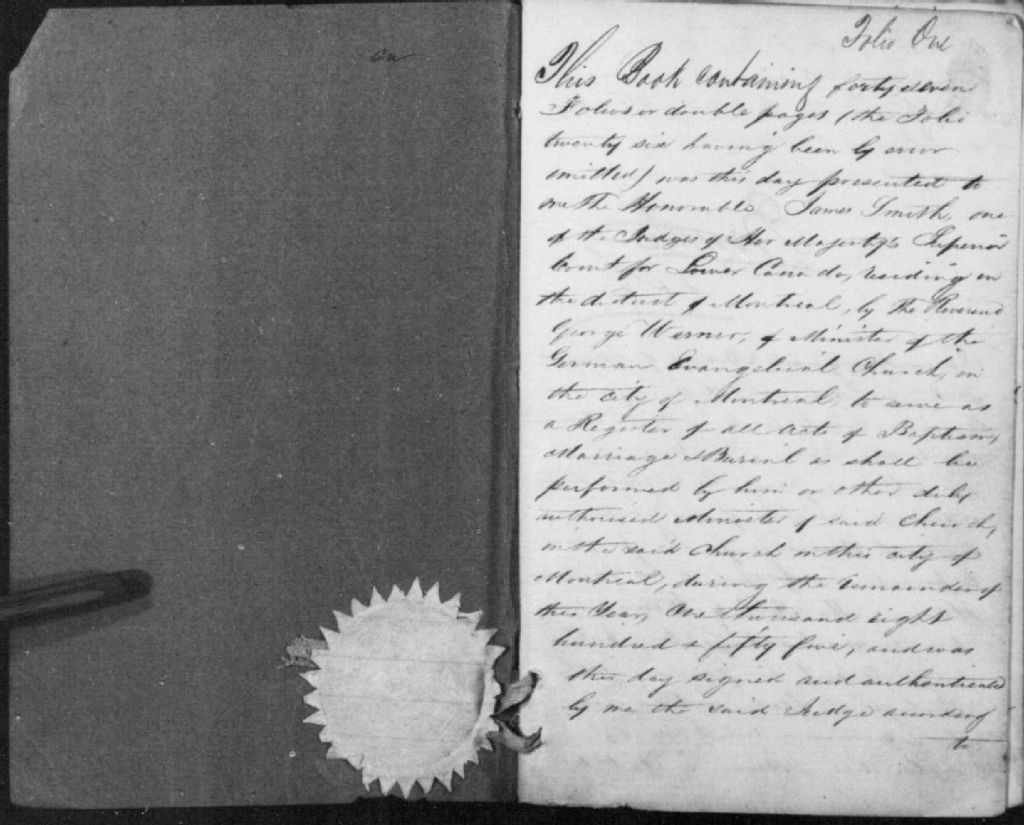 Folio One
This Book containing forty seven
Folios or double pages (the Folio
twenty six having been by error
omitted) was this day presented to
me The Honorable James Smith, one
of the Judges of Her Majesty's Superior
Court for Lower Canada, residing in
the district of Montreal, by the Reverend
George Werner, of Minister of the
German Evangelical Church, in
the city of Montreal, to serve as
a Register of all Acts of Baptism,
Marriage & Burial as shall be
performed by him or other duly
authorised Minister of said Church,
in the said Church in this city of
Montreal, during the remainder of
this Year, One thousand eight
hundred & fifty five, and was
this day signed and authenticated
by me the said Judge according
to